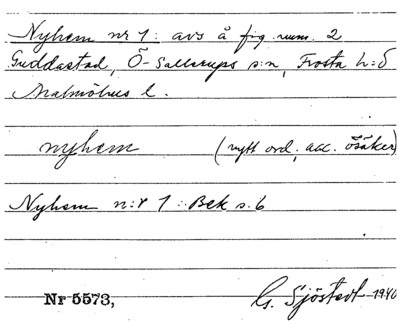 Nyhem nr 1: avs å fig. num. 2
Guddastad, Ö-Sallerups s:n, Frosta h:d
Malmöhus l.
nyhem (nytt ord, acc. osäker)
Nyhem n:r 1 : Bek s. 6
Nr 5573, G. Sjöstedt 1940